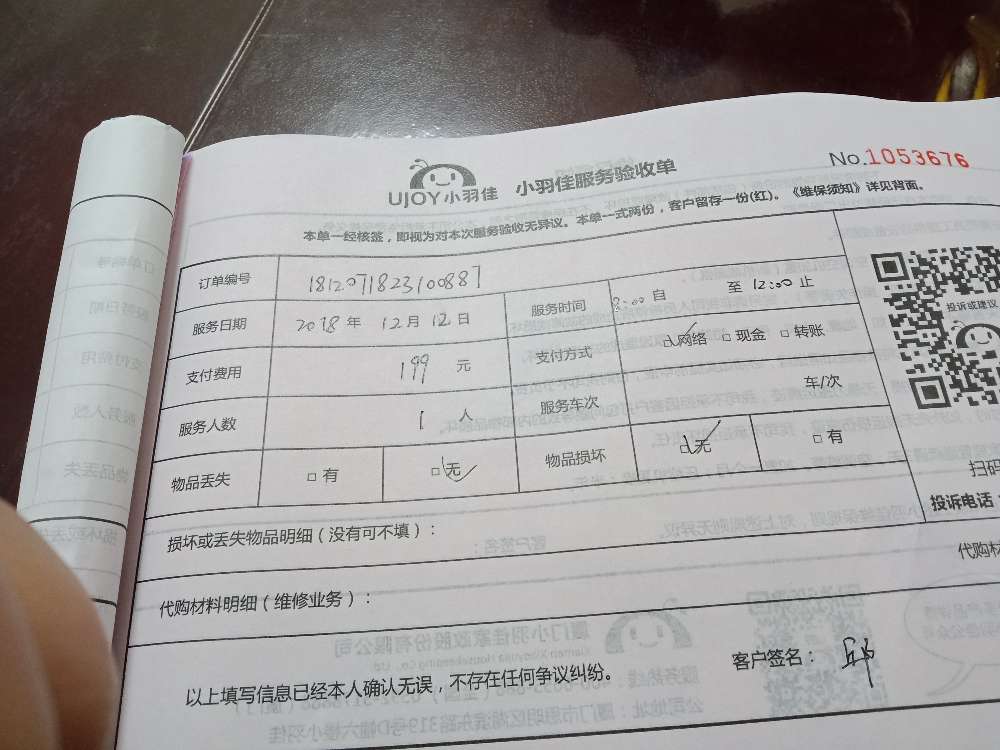 No.1053676
UJOY小羽佳 小羽佳服务验收单
本单一经核签，即视为对本次服务验收无异议。本单一式两份，客户留存一份(红)。《维保须知》详见背面。
订单编号 1812071823100887
服务日期 2018 年 12 月 12 日 服务时间 8:00 自 至 12:00 止
支付费用 199 元 支付方式 □网络 □现金 □转账
服务人数 1 人 服务车次 车/次
物品丢失 □有 □无 物品损坏 □无 □有
投诉或建议
扫码
投诉电话：
损坏或丢失物品明细（没有可不填）：
代购材
代购材料明细（维修业务）：
以上填写信息已经本人确认无误，不存在任何争议纠纷。
客户签名：